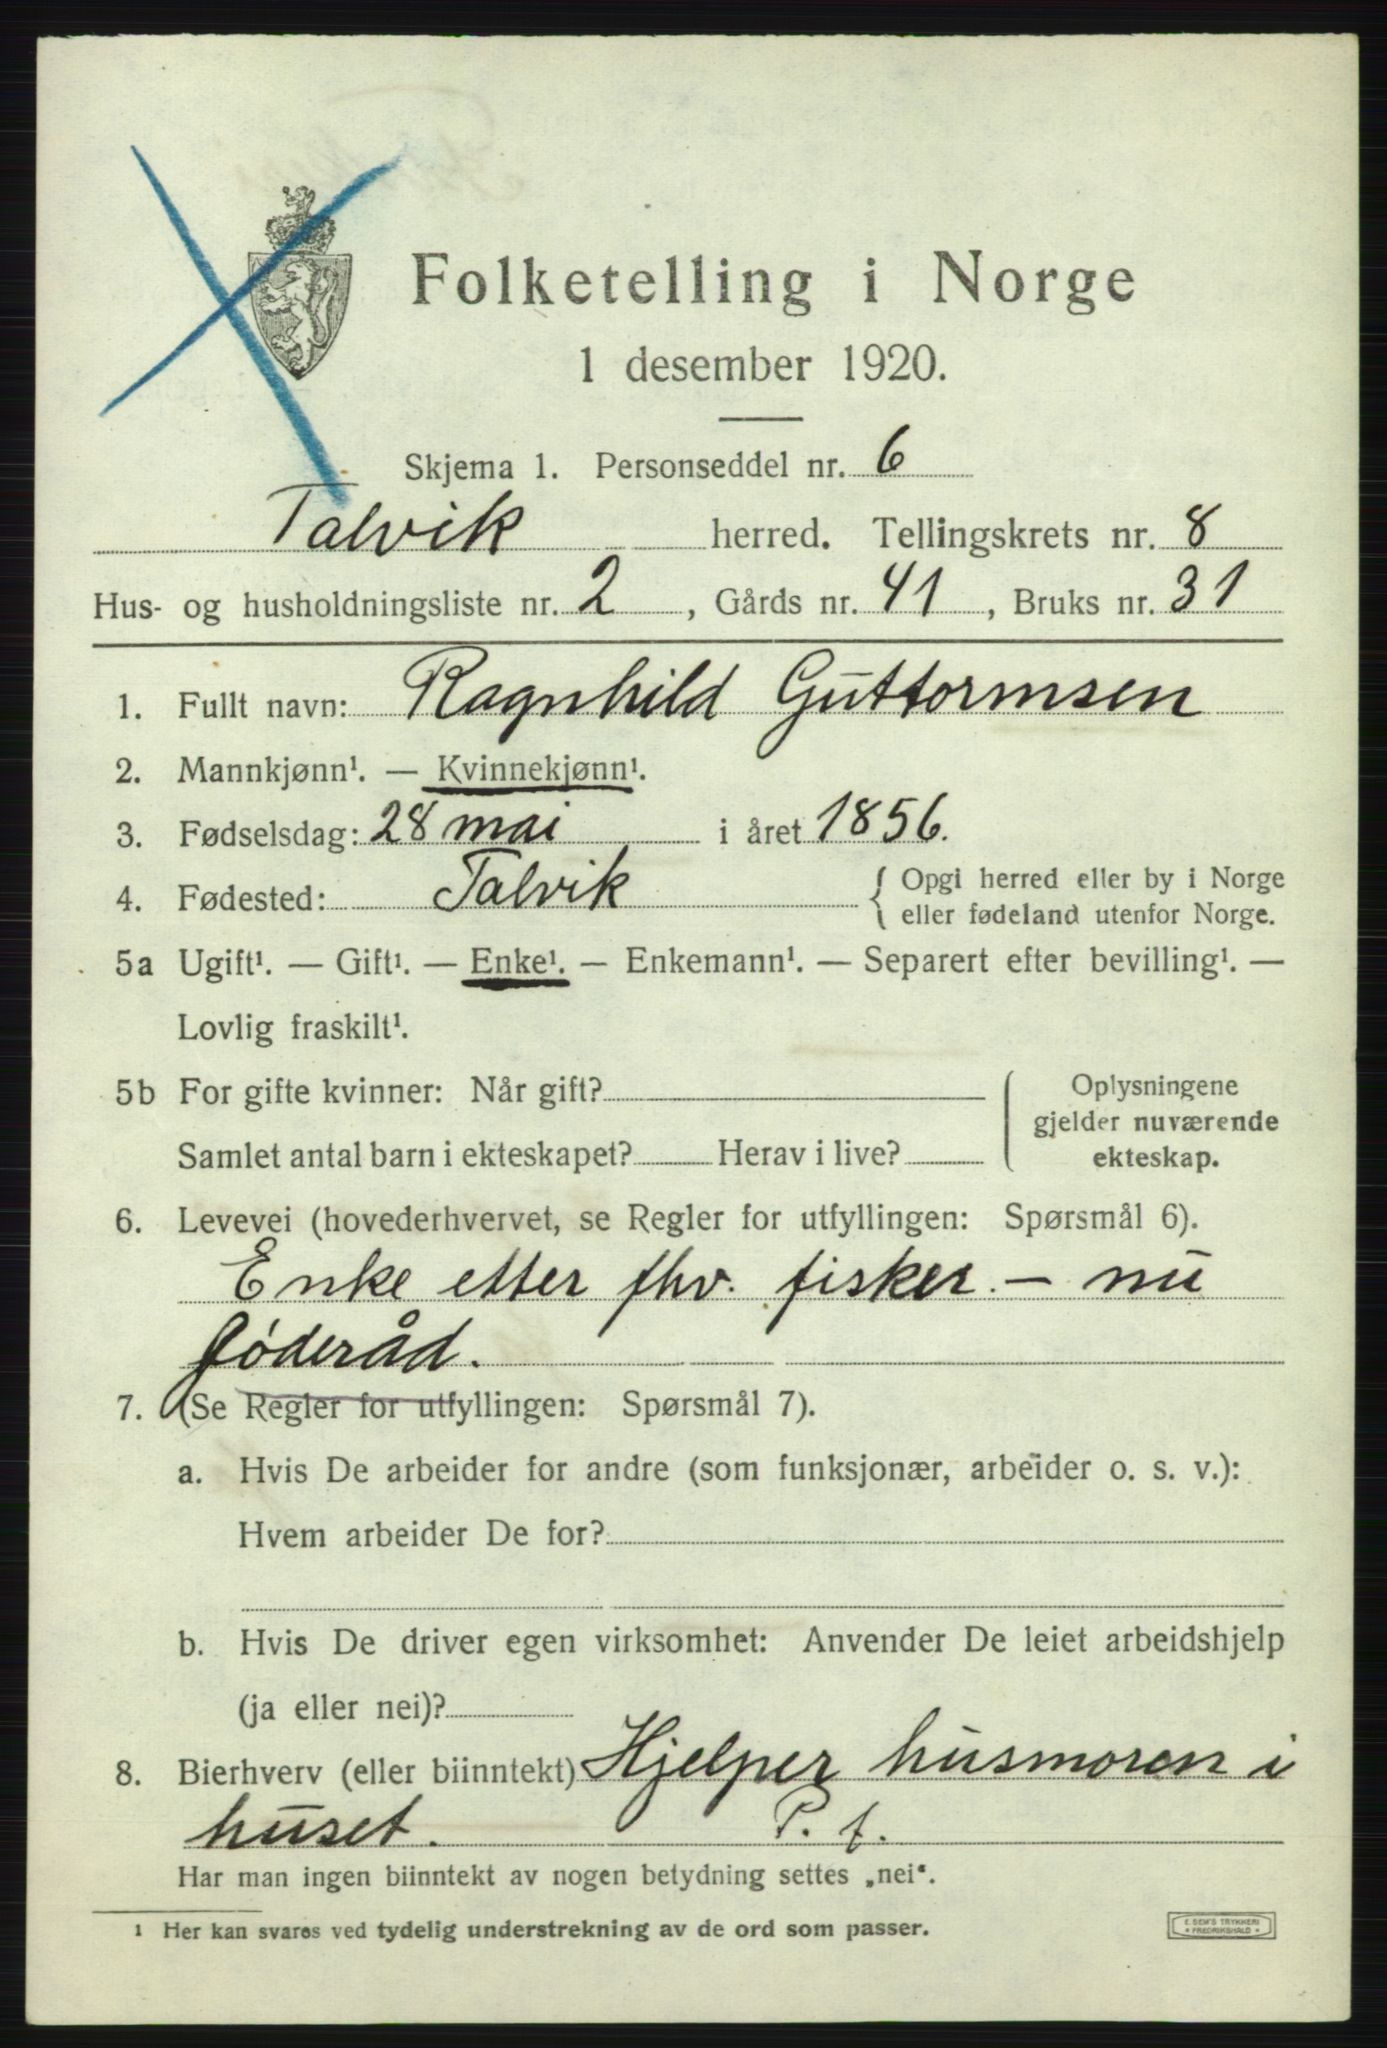 Folketelling i Norge
1 desember 1920.
Skjema 1. Personseddel nr. 6
Talvik herred. Tellingskrets nr. 8
Hus- og husholdningsliste nr. 2, Gårds nr. 41, Bruks nr. 31
1. Fullt navn: Ragnhild Guttormsen
2. Mannkjønn¹. — Kvinnekjønn¹.
3. Fødselsdag: 28 mai i året 1856.
4. Fødested: Talvik { Opgi herred eller by i Norge
eller fødeland utenfor Norge.
5a Ugift¹. — Gift¹. — Enke¹. — Enkemann¹. — Separert efter bevilling¹. —
Lovlig fraskilt¹.
5b For gifte kvinner: Når gift?
Samlet antal barn i ekteskapet? Herav i live?
Oplysningene
gjelder nuværende
ekteskap.
6. Levevei (hovederhvervet, se Regler for utfyllingen: Spørsmål 6).
Enke etter fhv. fisker. — nu
føderåd.
7. (Se Regler for utfyllingen: Spørsmål 7).
a. Hvis De arbeider for andre (som funksjonær, arbeider o. s. v.):
Hvem arbeider De for?
b. Hvis De driver egen virksomhet: Anvender De leiet arbeidshjelp
(ja eller nei)?
8. Bierhverv (eller biinntekt) Hjelper husmoren i
huset. P. f.
Har man ingen biinntekt av nogen betydning settes „nei“.
1 Her kan svares ved tydelig understrekning av de ord som passer.
E. SEM'S TRYKKERI
* FREDRIKSHALD *